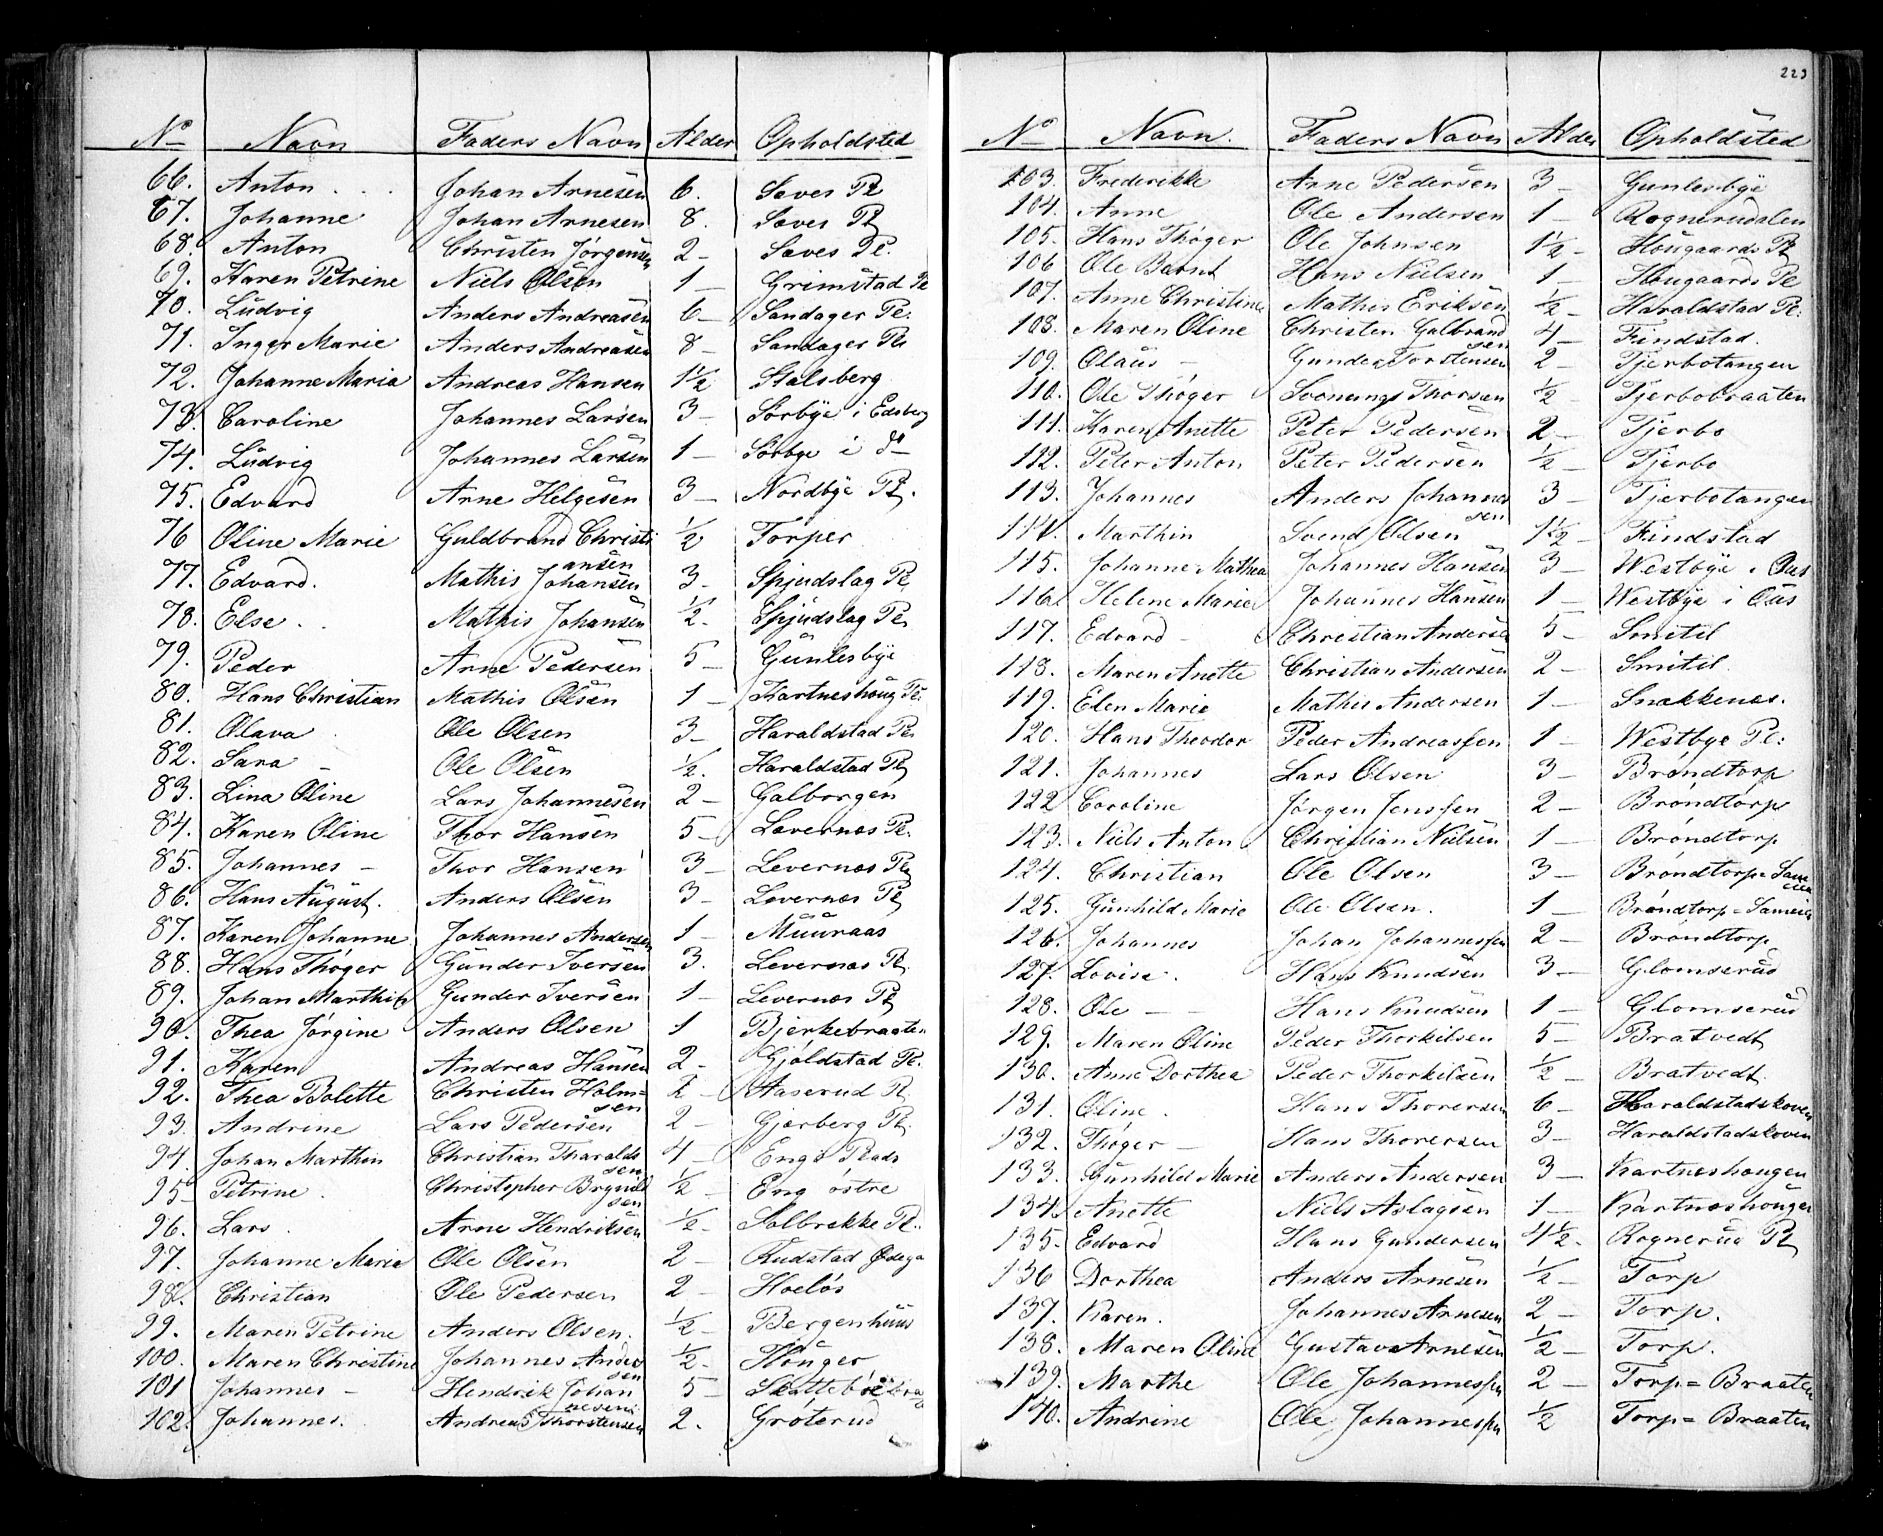 No Navn Faders Navn Alder Opholdsted
66. Anton Johan Arnesen 6. Saves Pl
67. Johanne Johan Arnesen 8. Saves Pl
68. Anton Christen Jørgensen 2 – Saves Pl.
69. Karen Petrine Niels Olsen 1 – Grimstad Pl
70. Ludvig Anders Andreasen 6 – Sandager Pl.
71. Inger Marie Anders Andreasen 8 – Sandager Pl.
72. Johanne Maria Andreas Hansen 1½ Stalsberg
73. Caroline Johannes Larsen 3 – Sørbye i Edsberg
74. Ludvig Johannes Larsen 1 – Sørbye i do
75. Edvard Arne Helgesen 3 – Nordbye Pl.
76 Oline Marie Guldbrand Christi
ansen ½ Torper
77. Edvard. Mathis Johansen 3 – Spjudslag Pl
78. Else Mathis Johansen ½. Spjudslag Pl
79. Peder Arne Pedersen 5 – Gunlesbye
80. Hans Christian Mathis Olsen 1 – Kartneshoug Pl.
81. Olava Ole Olsen 3 – Haraldstad Pl.
82. Sara – Ole Olsen ½. Haraldstad Pl
83. Lina Oline Lars Johannesen 2 – Galborgen
84. Karen Oline Thor Hansen 5 – Levernæs Pl.
85. Johannes – Thor Hansen 3 – Levernæs Pl
86. Hans August. Anders Olsen 3 – Levernæs Pl
87. Karen Johanne Johannes Andersen 1 – Muuraas
88. Hans Thøger Gunder Iversen 3. Levernæs Pl.
89. Johan Marthin Gunder Iversen 1 – Levernæs Pl
90. Thea Jørgine Anders Olsen 1 Bjerkebraaten
91. Karen Andreas Hansen 2 – Gjøldstad Pl.
92. Thea Bolette Christen Holm=
sen 2 – Aaserud Pl.
93. Andrine Lars Pedersen 2 – Gjerberg Pl.
94. Johan Marthin Christian Tharalds
sen 4 – Engs Plads
95 Petrine. Christopher
sen ½ – Eng østre
96. Lars. Arne Hendriksen ½ – Solbrekke Pl.
97. Johanne Marie Ole Olsen 2 – Rudstad Ødega
98. Christian Ole Pedersen 2 – Hoeløs
99. Maren Petrine Anders Olsen. ½ – Bergenhuus
100. Maren Christine Johannes Ander
sen ½ – Hønger
101 Johannes – Hendrik Johan
nesen 5 –
102. Johannes. Andreas Thorstensen 2. Grøterud
223
No Navn. Faders Navn Alder Opholdsted
103. Frederikke Arne Pedersen 3 – Gunlesbye
104. Anne Ole Andersen 1 – Rognerudalen
105. Hans Thøger Ole Johnsen 1½ – Hougaards Pl
106 Ole Bernt Hans Nielsen 1 – Hougaards Pl
107. Anne Christine Mathis Eriksen ½ – Haraldstad Pl.
108. Maren Oline Christen Gulbrand
sen 4 – Findstad.
109. Olaus – Gunder Torstensen 2 – Tjerbotangen
110. Ole Thøger Svenung Thorsen ½ – Tjerbobraaten
111. Karen Anette Peter Pedersen 2 – Tjerbo
112. Peter Anton Peter Pedersen ½ – Tjerbo
113. Johannes Anders Johannes
sen 3 – Tjerbotangen
114. Marthin Svend Olsen 1½ – Findstad
115. Johanne Mathea Johannes Hansen 3 – Westbye i Aas
116. Helene Marie Johannes Hansen 1 – Westbye i Aas
117. Edvard – Christian Anderse 5 – Smitil
118. Maren Anette Christian Andersen 2 – Smitil.
119. Elen Marie Mathis Andersen 1 – Snekkenes.
120. Hans Theodor Peder Andreassen 1 – Westbye Pl:
121. Johannes Lars Olsen 3 – Brøndtorp
122 Caroline Jørgen Jenssen 2 – Brøndtorp
123. Niels Anton Christian Nielsen 1 – Brøndtorp
124. Christian Ole Olsen 3 – Brøndtorp=Same
ien
125. Gunhild Marie Ole Olsen. 1 – Brøndtorp=Sameien
126. Johannes Johan Johannessen 2 – Brøndtorp
127. Lovise. Hans Knudsen 3 – Glomserud
128. Ole – – Hans Knudsen 1 – Glomserud
129. Maren Oline Peder Thorkilsen 5 – Bratvedt
130. Anne Dorthea Peder Thorkilsen ½ – Bratvedt.
131. Oline. Hans Thorersen 6 – Haraldstadskoven
132. Thøger – Hans Thorersen 3 – Haraldstadskoven
133. Gunhild Marie Anders Andersen 3 – Kartneshougen
134. Anette Niels Aslagsen 1 – Kartneshougen
135. Edvard Hans Gundersen 4½. Rognerud Pl
136 Dorthea Anders Arnesen ½ – Torp
137. Karen. Johannes Arnesen 2 – Torp.
138. Maren Oline Gustav Arnesen ½ – Torp.
139. Marthe Ole Johannessen 2 – Torp=Braaten
140. Andrine Ole Johannessen ½ Torp=Braaten